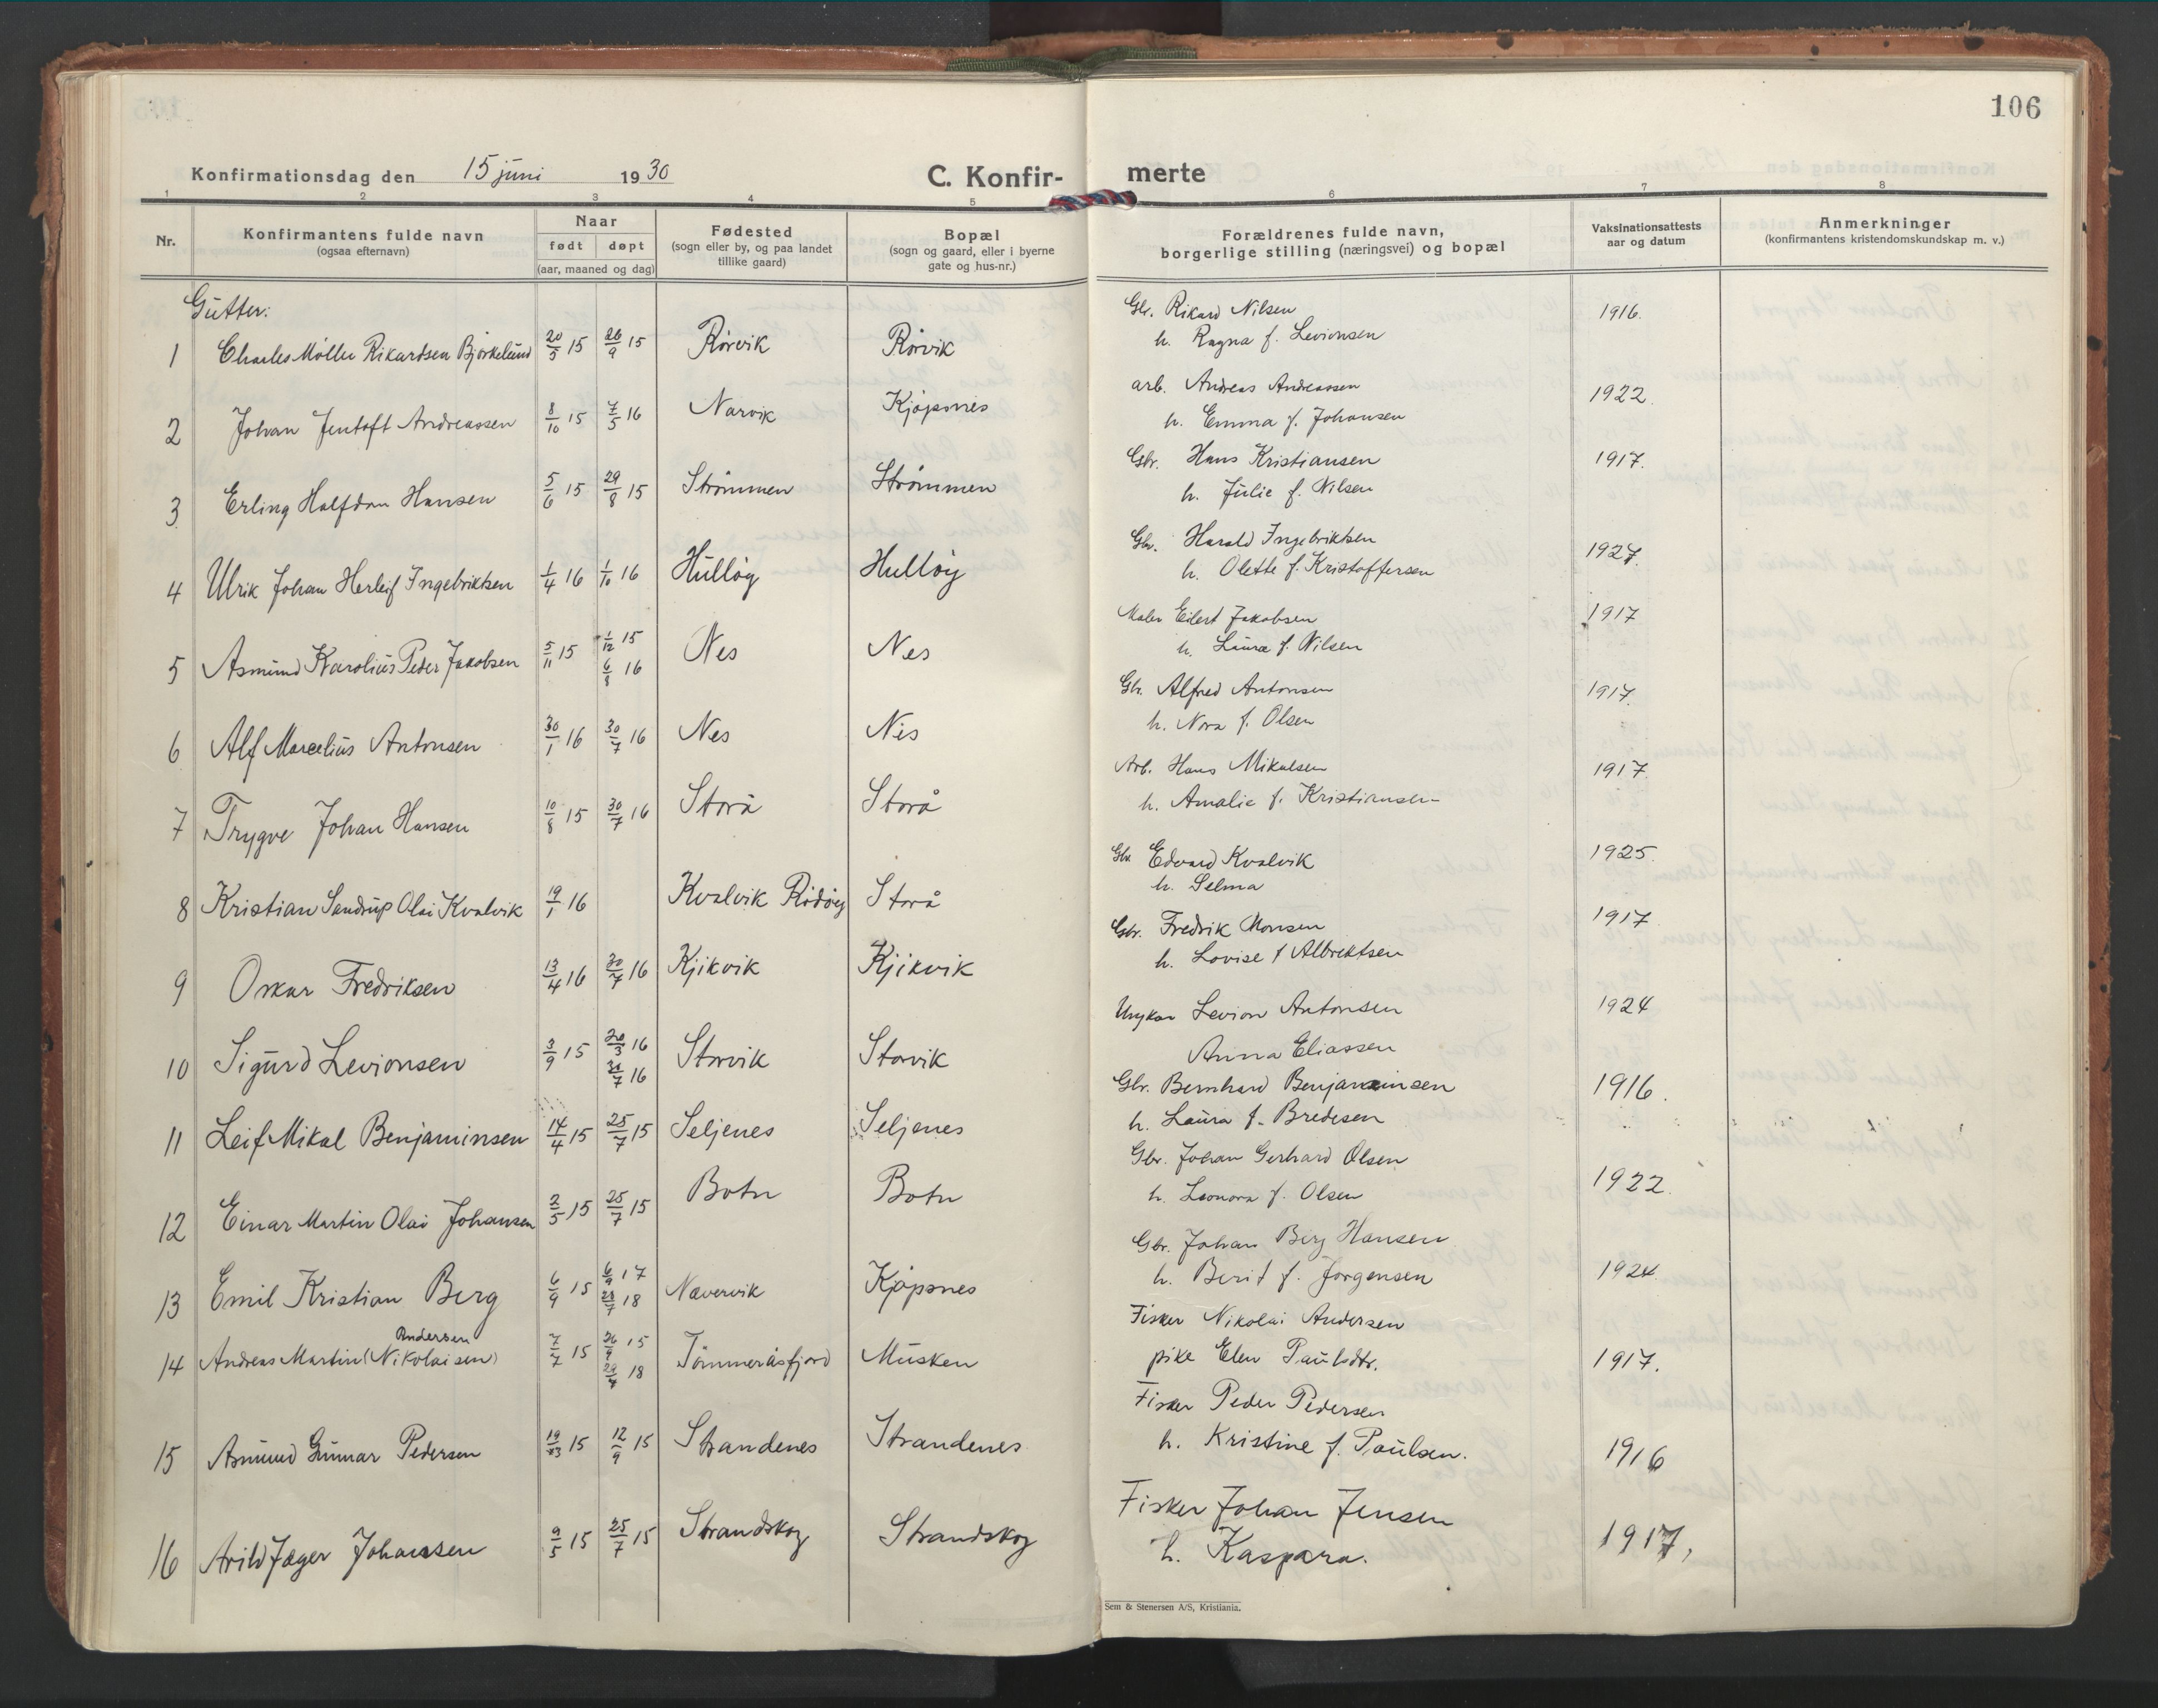 106
Konfirmationsdag den 15 juni 1930
C. Konfir- merte
1 2 3 4 5 6 7 8
Nr.
Konfirmantens fulde navn
(ogsaa efternavn)
Naar
født døpt
(aar, maaned og dag)
Fødested
(sogn eller by, og paa landet
tillike gaard)
Bopæl
(sogn og gaard, eller i byerne
gate og hus-nr.)
Forældrenes fulde navn,
borgerlige stilling (næringsvei) og bopæl
Vaksinationsattests
aar og datum
Anmerkninger
(konfirmantens kristendomskundskap m. v.)
Gutter:
1 Charles Møller Rikardsen Bjørkelund 20/5 15 26/9 15 Rørvik Rørvik Gbr. Rikard Nilsen 1916.
h. Ragna f. Levionsen
2 Johan Jentoft Andreassen 8/10 15 7/5 16 Narvik Kjøpsnes arb. Andreas Andreassen 1922.
h. Emma f. Johansen
3 Erling Halfdan Hansen 5/6 15 29/8 15 Strømmen Strømmen Gbr. Hans Kristiansen 1917.
h. Julie f. Nilsen
4 Ulrik Johan Herleif Ingebriktsen 1/4 16 1/10 16 Hulløy Hulløy Gbr. Harald Ingebriktsen 1927.
h. Olette f. Kristoffersen
5 Asmund Karolius Peder Jakobsen 5/11 15 1/12 15 Nes Nes Maler Eilert Jakobsen 1917
6/8 16 h. Laura f. Nilsen
6 Alf Marcelius Antonsen 30/1 16 30/7 16 Nes Nes Gbr. Alfred Antonsen 1917.
h. Nora f. Olsen
7 Trygve Johan Hansen 10/8 15 30/7 16 Storå Storå Arb. Hans Mikalsen 1917.
h. Amalie f. Kristiansen
8 Kristian Sandrup Olai Kvalvik 19/1 16 Kvalvik Rødøy Storå Gbr. Edvard Kvalvik 1925.
h. Selma
9 Oskar Fredriksen 13/4 16 30/7 16 Kjikvik Kjikvik Gbr. Fredrik Monsen 1917
h. Lovise f Albrektsen
10 Sigurd Levionsen 3/9 15 20/3 16 Storvik Storvik Ungkar Levion Antonsen 1924
30/7 16 Anna Eliassen
11 Leif Mikal Benjaminsen 14/4 15 25/7 15 Seljenes Seljenes Gbr. Bernhard Benjaminsen 1916.
h. Laura f. Bredesen
12 Einar Martin Olai Johansen 2/5 15 25/7 15 Botn Botn Gbr. Johan Gerhard Olsen 1922.
h. Leonora f. Olsen
13 Emil Kristian Berg 6/9 15 6/9 17 Nævervik Kjøpsnes Gbr. Johan Berg Hansen 1924.
28/7 18 h. Berit f. Jørgensen
Andersen
14 Andreas Martin (Nikolaisen) 7/7 15 26/9 15 Tømmeråsfjord Musken Fisker Nikolai Andersen 1917.
18 pike Elen Paulsdtr.
15 Asmund Gunnar Pedersen 19/3 15 12/9 15 Strandenes Strandenes Fisker Peder Pedersen 1916
h. Kristine f. Paulsen.
16 Arild Jæger Johansen 9/5 15 25/7 15 Strandskog Strandskog Fisker Johan Jensen 1917.
h. Kaspara.
Sem & Stenersen A/S, Kristiania.